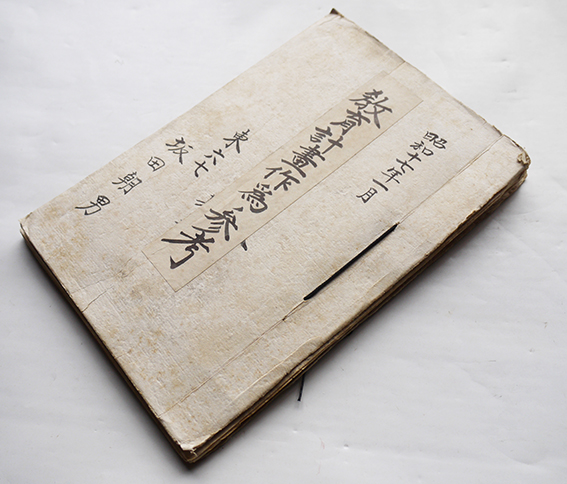 昭和十七年一月
教育計畫作爲参考
東六七
坂田朝男